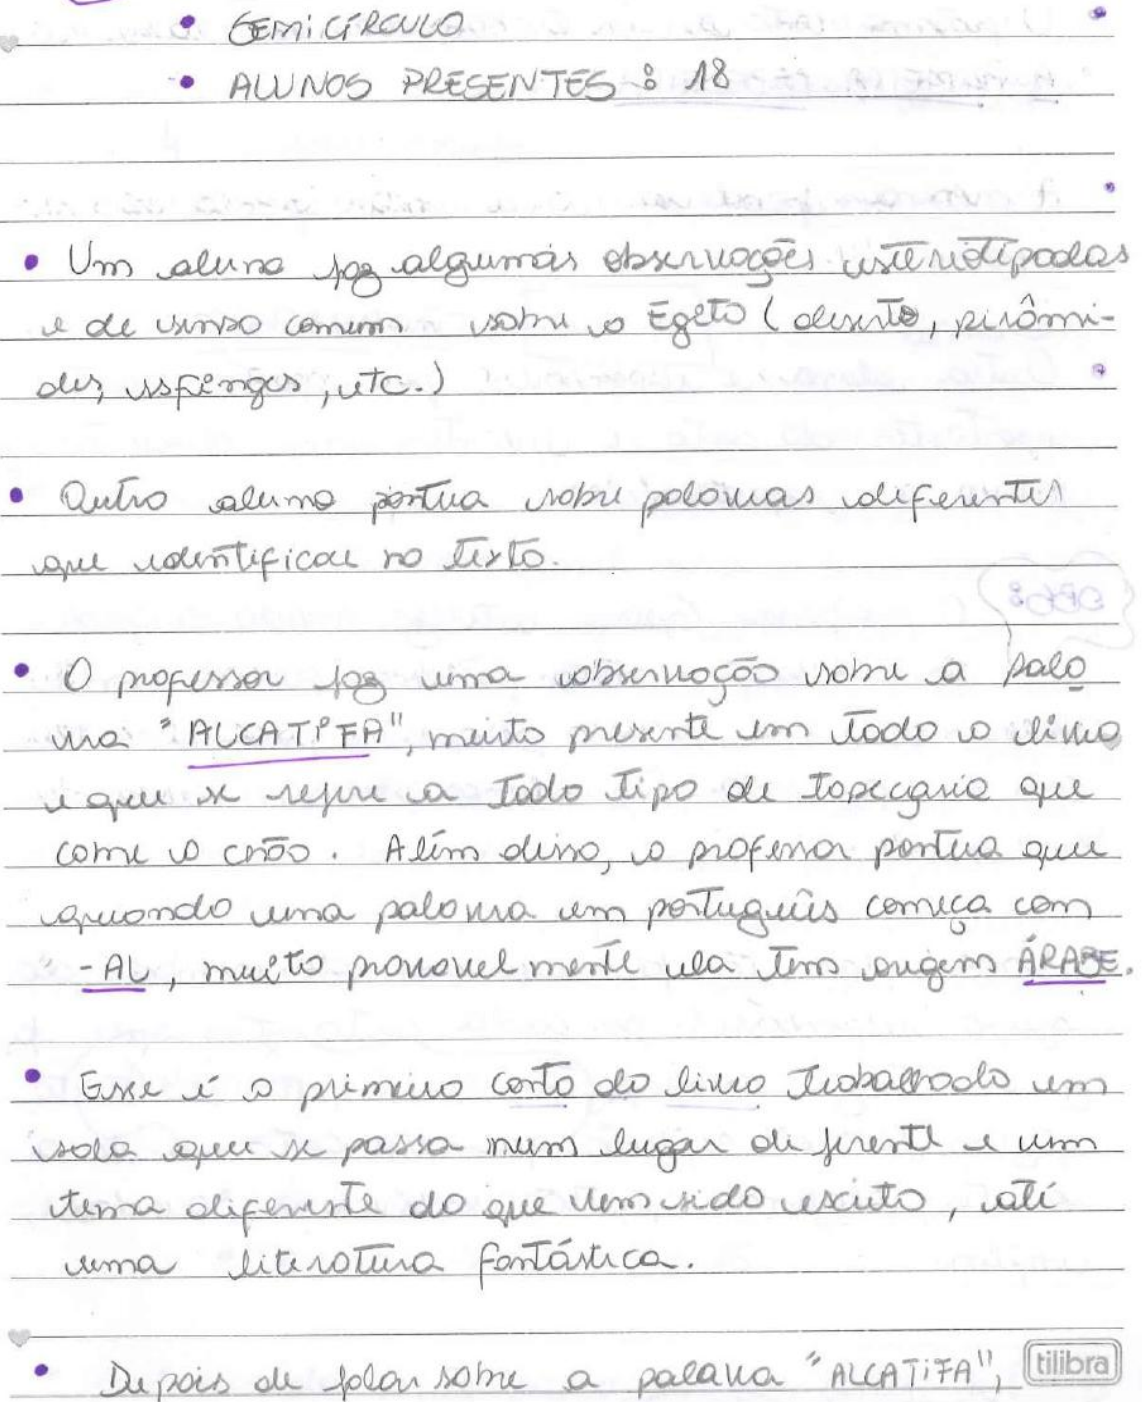 • SEMICÍRCULO
• ALUNOS PRESENTES: 18
• Um aluno faz algumas observações esteriotipadas
e de senso comum sobre o Egito (deserto, pirâmi-
des, esfinges, etc.)
• Outro aluno pontua sobre palavras diferentes
que identificou no texto.
• O professor faz uma observação sobre a pala
vra "ALCATIFA", muito presente em todo o livro
e que se refere a todo tipo de tapeçaria que
cobre o chão. Além disso, o professor pontua que
quando uma palavra em português começa com
-AL, muito provavelmente ela tem origem ÁRABE.
• Esse é o primeiro conto do livro trabalhado em
sala que se passa num lugar diferente e um
tema diferente do que vem sido escrito, até
uma literatura fantástica.
• Depois de falar sobre a palavra "ALCATIFA",
tilibra